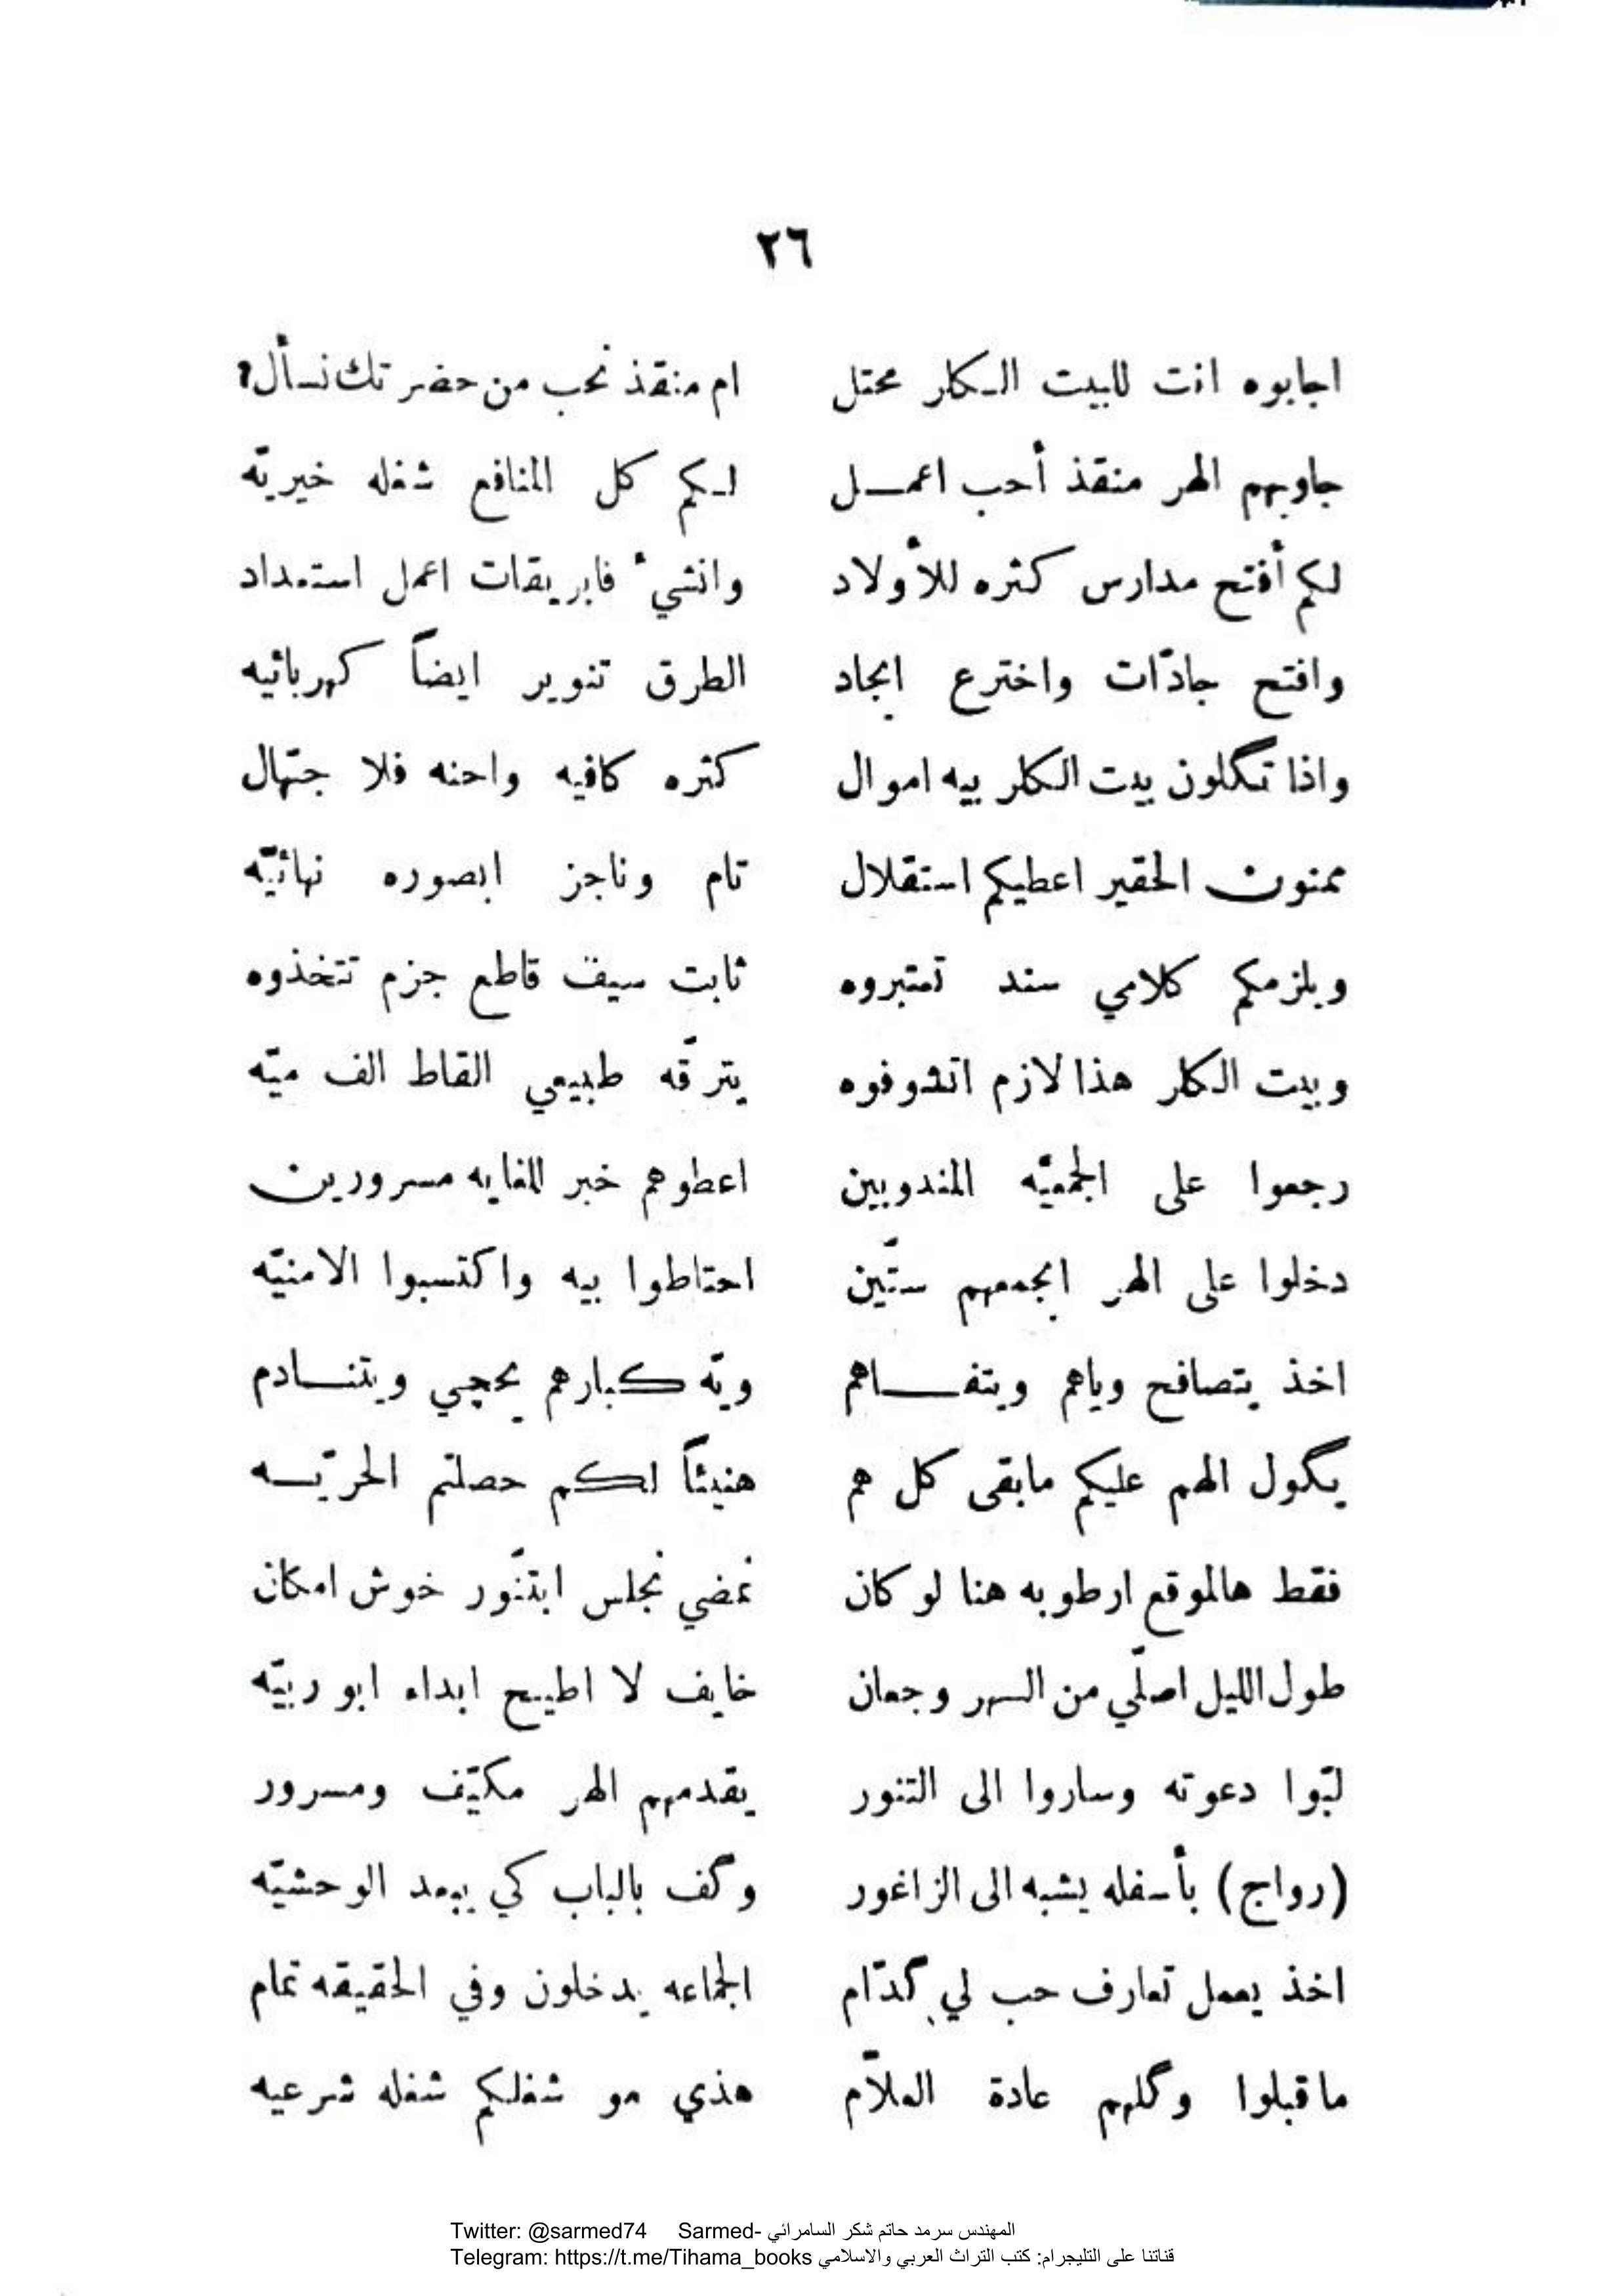 ٢٦
اجابوه انت للبيت الكار محتل ام منقذ نحب من حضرتك نسأل؟
جاوبهم الهر منقذ أحب اعمـــل لـكم كل المنافع شغله خيريّه
لكم أفتح مدارس كثره للأولاد وانشيء فابريقات اعمل استعداد
وافتح جادّات واخترع ايجاد الطرق تنوير ايضاً كهربائيه
واذا تگلون بيت الكلر بيه اموال كثره كافيه واحنه فلا جهّال
ممنون الحقير اعطيكم استقلال تام وناجز ابصوره نهائيّه
ويلزمكم كلامي سند تعتبروه ثابت سيف قاطع جزم تتخذوه
وبيت الكلر هذا لازم اتشوفوه يترقّه طبيعي القاط الف ميّه
رجعوا على الجمعيّه المندوبين اعطوهم خبر للغايه مسرورين
دخلوا على الهر ابجمعهم ستّين احتاطوا بيه واكتسبوا الامنيّه
اخذ يتصافح وياهم ويتفـــاهم ويّه كبارهم يحچي ويتنـــادم
يگول الهم عليكم مابقى كل هم هنيئاً لكم حصلتم الحريّـــه
فقط هالموقع ارطوبه هنا لو كان نمضي نجلس ابتنّور خوش امكان
طول الليل اصلّي من السهر وجعان خايف لا اطيح ابداء ابو ربيّه
لبّوا دعوته وساروا الى التنور يقدمهم الهر مكيّف ومسرور
(رواج) بأسفله يشبه الى الزاغور وگف بالباب كي يبعد الوحشيّه
اخذ يعمل تعارف حب لي گدّام الجماعه يدخلون وفي الحقيقه تمام
ماقبلوا وگلهم عادة العلاّم هذي مو شغلكم شغله شرعيه
Twitter: @sarmed74 Sarmed- المهندس سرمد حاتم شكر السامرائي
Telegram: https://t.me/Tihama_books قناتنا على التليجرام: كتب التراث العربي والاسلامي